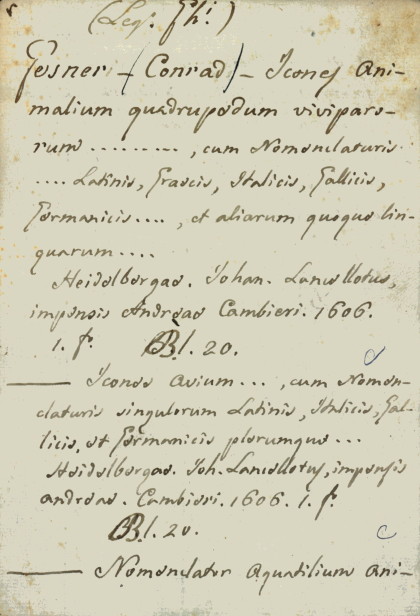 (Leg. Fhi.)
Gesner - (Conrad) - Icones Ani-
malium quadrupedum vivipars-
rum ........., cum Nomenclaturis
.... Latinis, Graecis, Italicis, Gallicis,
Germanicis...., et aliarum quoque lin-
guarum....
Heidelbergae. Johan. Lancellotus,
impensis Andreae Cambieri. 1606.
1. f. BBl. 20.
— Icones avium..., cum Nomen-
claturis singulorum Latinis, Italicis, Gal-
licis, et Germanicis plerumque...
Heidelbergae. Joh. Lancellotus, impensis
andreae. Cambieri. 1606. 1. f.
BBl. 20. c
— Nomenclator Aquatilium Ani-